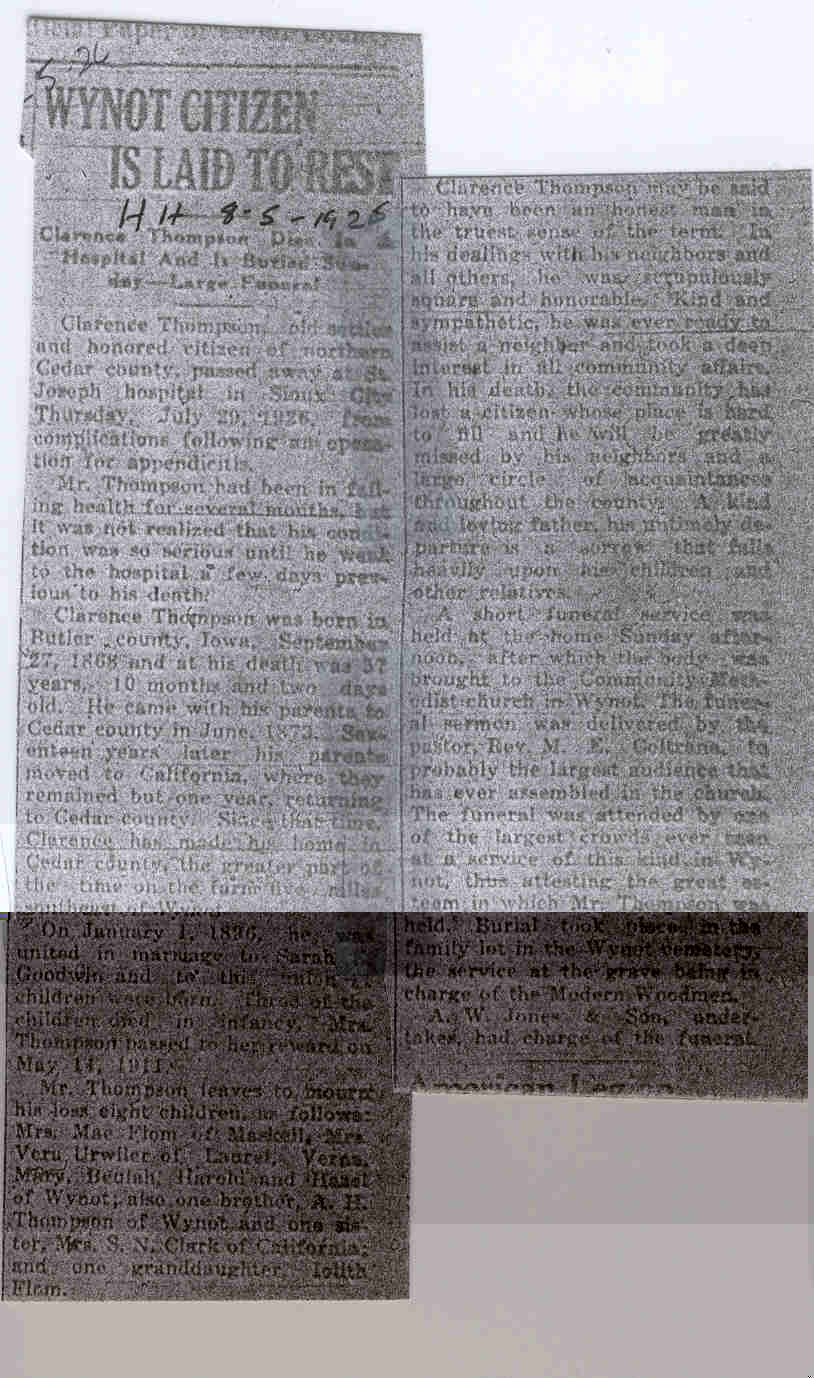 5 '26
WYNOT CITIZEN
IS LAID TO REST
H H 8-5-1926
Clarence Thompson Dies in a
Hospital And Is Buried Sun-
day—Large Funeral
Clarence Thompson, old settler
and honored citizen of northern
Cedar county, passed away at St.
Joseph hospital in Sioux City
Thursday, July 29, 1926, from
complications following an opera-
tion for appendicitis.
Mr. Thompson had been in fail-
ing health for several months, but
it was not realized that his condi-
tion was so serious until he went
to the hospital a few days prev-
ious to his death.
Clarence Thompson was born in
Butler county, Iowa, September
27, 1868 and at his death was 57
years, 10 months and two days
old. He came with his parents to
Cedar county in June, 1873. Sev-
enteen years later his parents
moved to California, where they
remained but one year, returning
to Cedar county. Since that time,
Clarence has made his home in
Cedar county, the greater part of
the time on the farm five miles
southeast of Wynot.
On January 1, 1896, he was
united in marriage to Sarah
Goodwin and to this union
children were born. Three of the
children died in infancy. Mrs.
Thompson passed to her reward on
May 14, 1911.
Mr. Thompson leaves to mourn
his loss eight children, as follows:
Mrs. Mae Flom of Maskell, Mrs.
Vera Urwiler of Laurel, Verna,
Mary, Beulah, Harold and Hazel
of Wynot; also one brother, A. H.
Thompson of Wynot and one sis-
ter, Mrs. S. N. Clark of California;
and one granddaughter, Iolith
Flom.
Clarence Thompson may be said
to have been an honest man in
the truest sense of the term. In
his dealings with his neighbors and
all others, he was scrupulously
square and honorable. Kind and
sympathetic, he was ever ready to
assist a neighbor and took a deep
interest in all community affairs.
In his death, the community has
lost a citizen whose place is hard
to fill and he will be greatly
missed by his neighbors and a
large circle of acquaintances
throughout the county. A kind
and loving father, his untimely de-
parture is a sorrow that falls
heavily upon his children and
other relatives.
A short funeral service was
held at the home Sunday after-
noon, after which the body was
brought to the Community Meth-
odist church in Wynot. The funer-
al sermon was delivered by the
pastor, Rev. M. E. Coltrane, to
probably the largest audience that
has ever assembled in the church.
The funeral was attended by one
of the largest crowds ever seen
at a service of this kind in Wy-
not, thus attesting the great es-
teem in which Mr. Thompson was
held. Burial took place in the
family lot in the Wynot cemetery,
the service at the grave being in
charge of the Modern Woodmen.
A. W. Jones & Son, under-
takes, had charge of the funeral.
American Legion